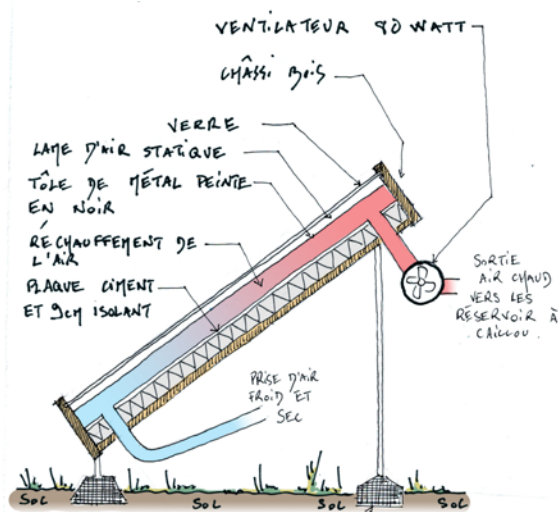 VENTILATEUR 80 WATT
CHÂSSI BOIS
VERRE
LAME D'AIR STATIQUE
TÔLE DE MÉTAL PEINTE
EN NOIR
RÉCHAUFFEMENT DE
L'AIR
PLAQUE CIMENT
ET 9cm ISOLANT
SORTIE
AIR CHAUD
VERS LES
RÉSERVOIR À
CAILLOU.
PRISE D'AIR
FROID ET
SEC
SOL SOL SOL SOL